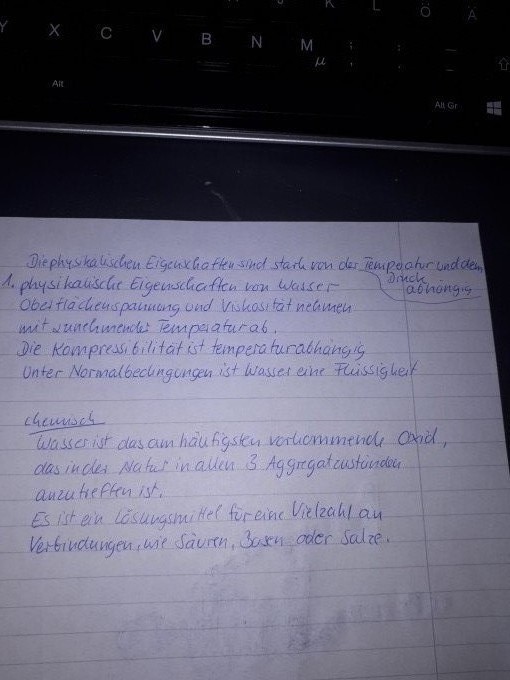 K L Ö Ä
Y X C V B N M ; :
µ , . -
Alt Alt Gr
Die physikalischen Eigenschaften sind stark von der Temperatur und dem
Druck
abhängig
1. physikalische Eigenschaften von Wasser
Oberflächenspannung und Viskosität nehmen
mit zunehmender Temperatur ab.
Die Kompressibilität ist temperaturabhängig
Unter Normalbedingungen ist Wasser eine Flüssigkeit
chemisch
Wasser ist das am häufigsten vorkommende Oxid,
das in der Natur in allen 3 Aggregatzuständen
anzutreffen ist.
Es ist ein Lösungsmittel für eine Vielzahl an
Verbindungen, wie Säuren, Basen oder Salze.